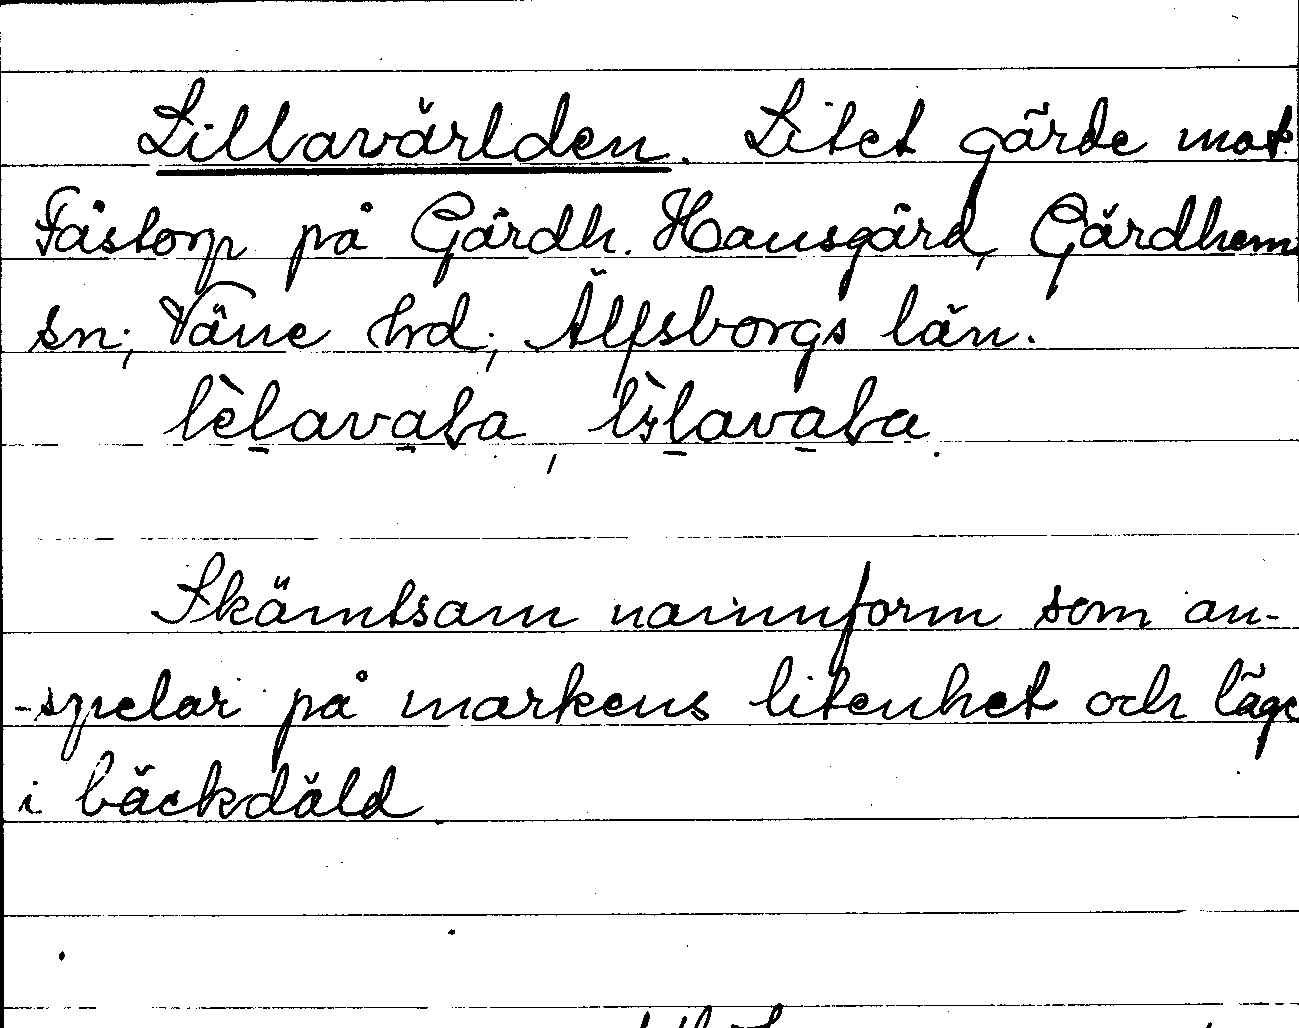 Lillavärlden. Litet gärde mot
Fåstorp på Gärdh. Hansgård, Gärdhem
sn; Väne hrd; Älfsborgs län.
Skämtsam namnform som an-
-spelar på markens litenhet och läge
i bäckdäld.